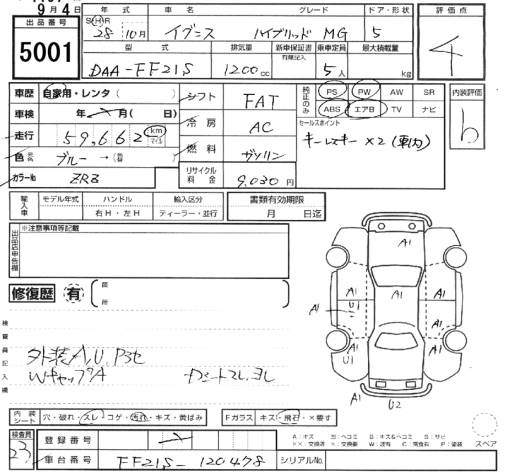 9月4日
出品番号
5001
年式 車名 グレード ドア・形状
S H R 28年10月 イグニス ハイブリッド MG 5
型式 排気量 新車保証書 有限記入 乗車定員 最大積載量
DAA-FF21S 1200cc 5人 kg
評価点
4
車歴 自家用・レンタ( )
車検 年 月( 日)
走行 59,662 km マイル
色 ブルー→( )
カラーNo ZRB
シフト FAT
冷房 AC
燃料 ガソリン
リサイクル料金 9,030円
純正のみ PS PW AW SR
ABS エアB TV ナビ
セールスポイント
キーレスキー×2(車内)
内装評価
b
輸入車 モデル年式 ハンドル 輸入区分
右H・左H ディーラー・並行
書類有効期限
月 日迄
出品店申告欄
※注意事項等記載
修復歴 有
検査員記入欄
外装A,U,Pセ
WキャップA
A1
A1 A1 A1
A1 U1
A1 A1
U1
A1
U2
内装シート 穴・破れ・スレ・コゲ・汚れ・キズ・黄ばみ
Fガラス キズ・飛石・×要す
検査員 23
登録番号
車台番号 FF21S-120478
シリアルNo.
A:キズ U:ヘコミ B:キズ&ヘコミ S:サビ
スペア